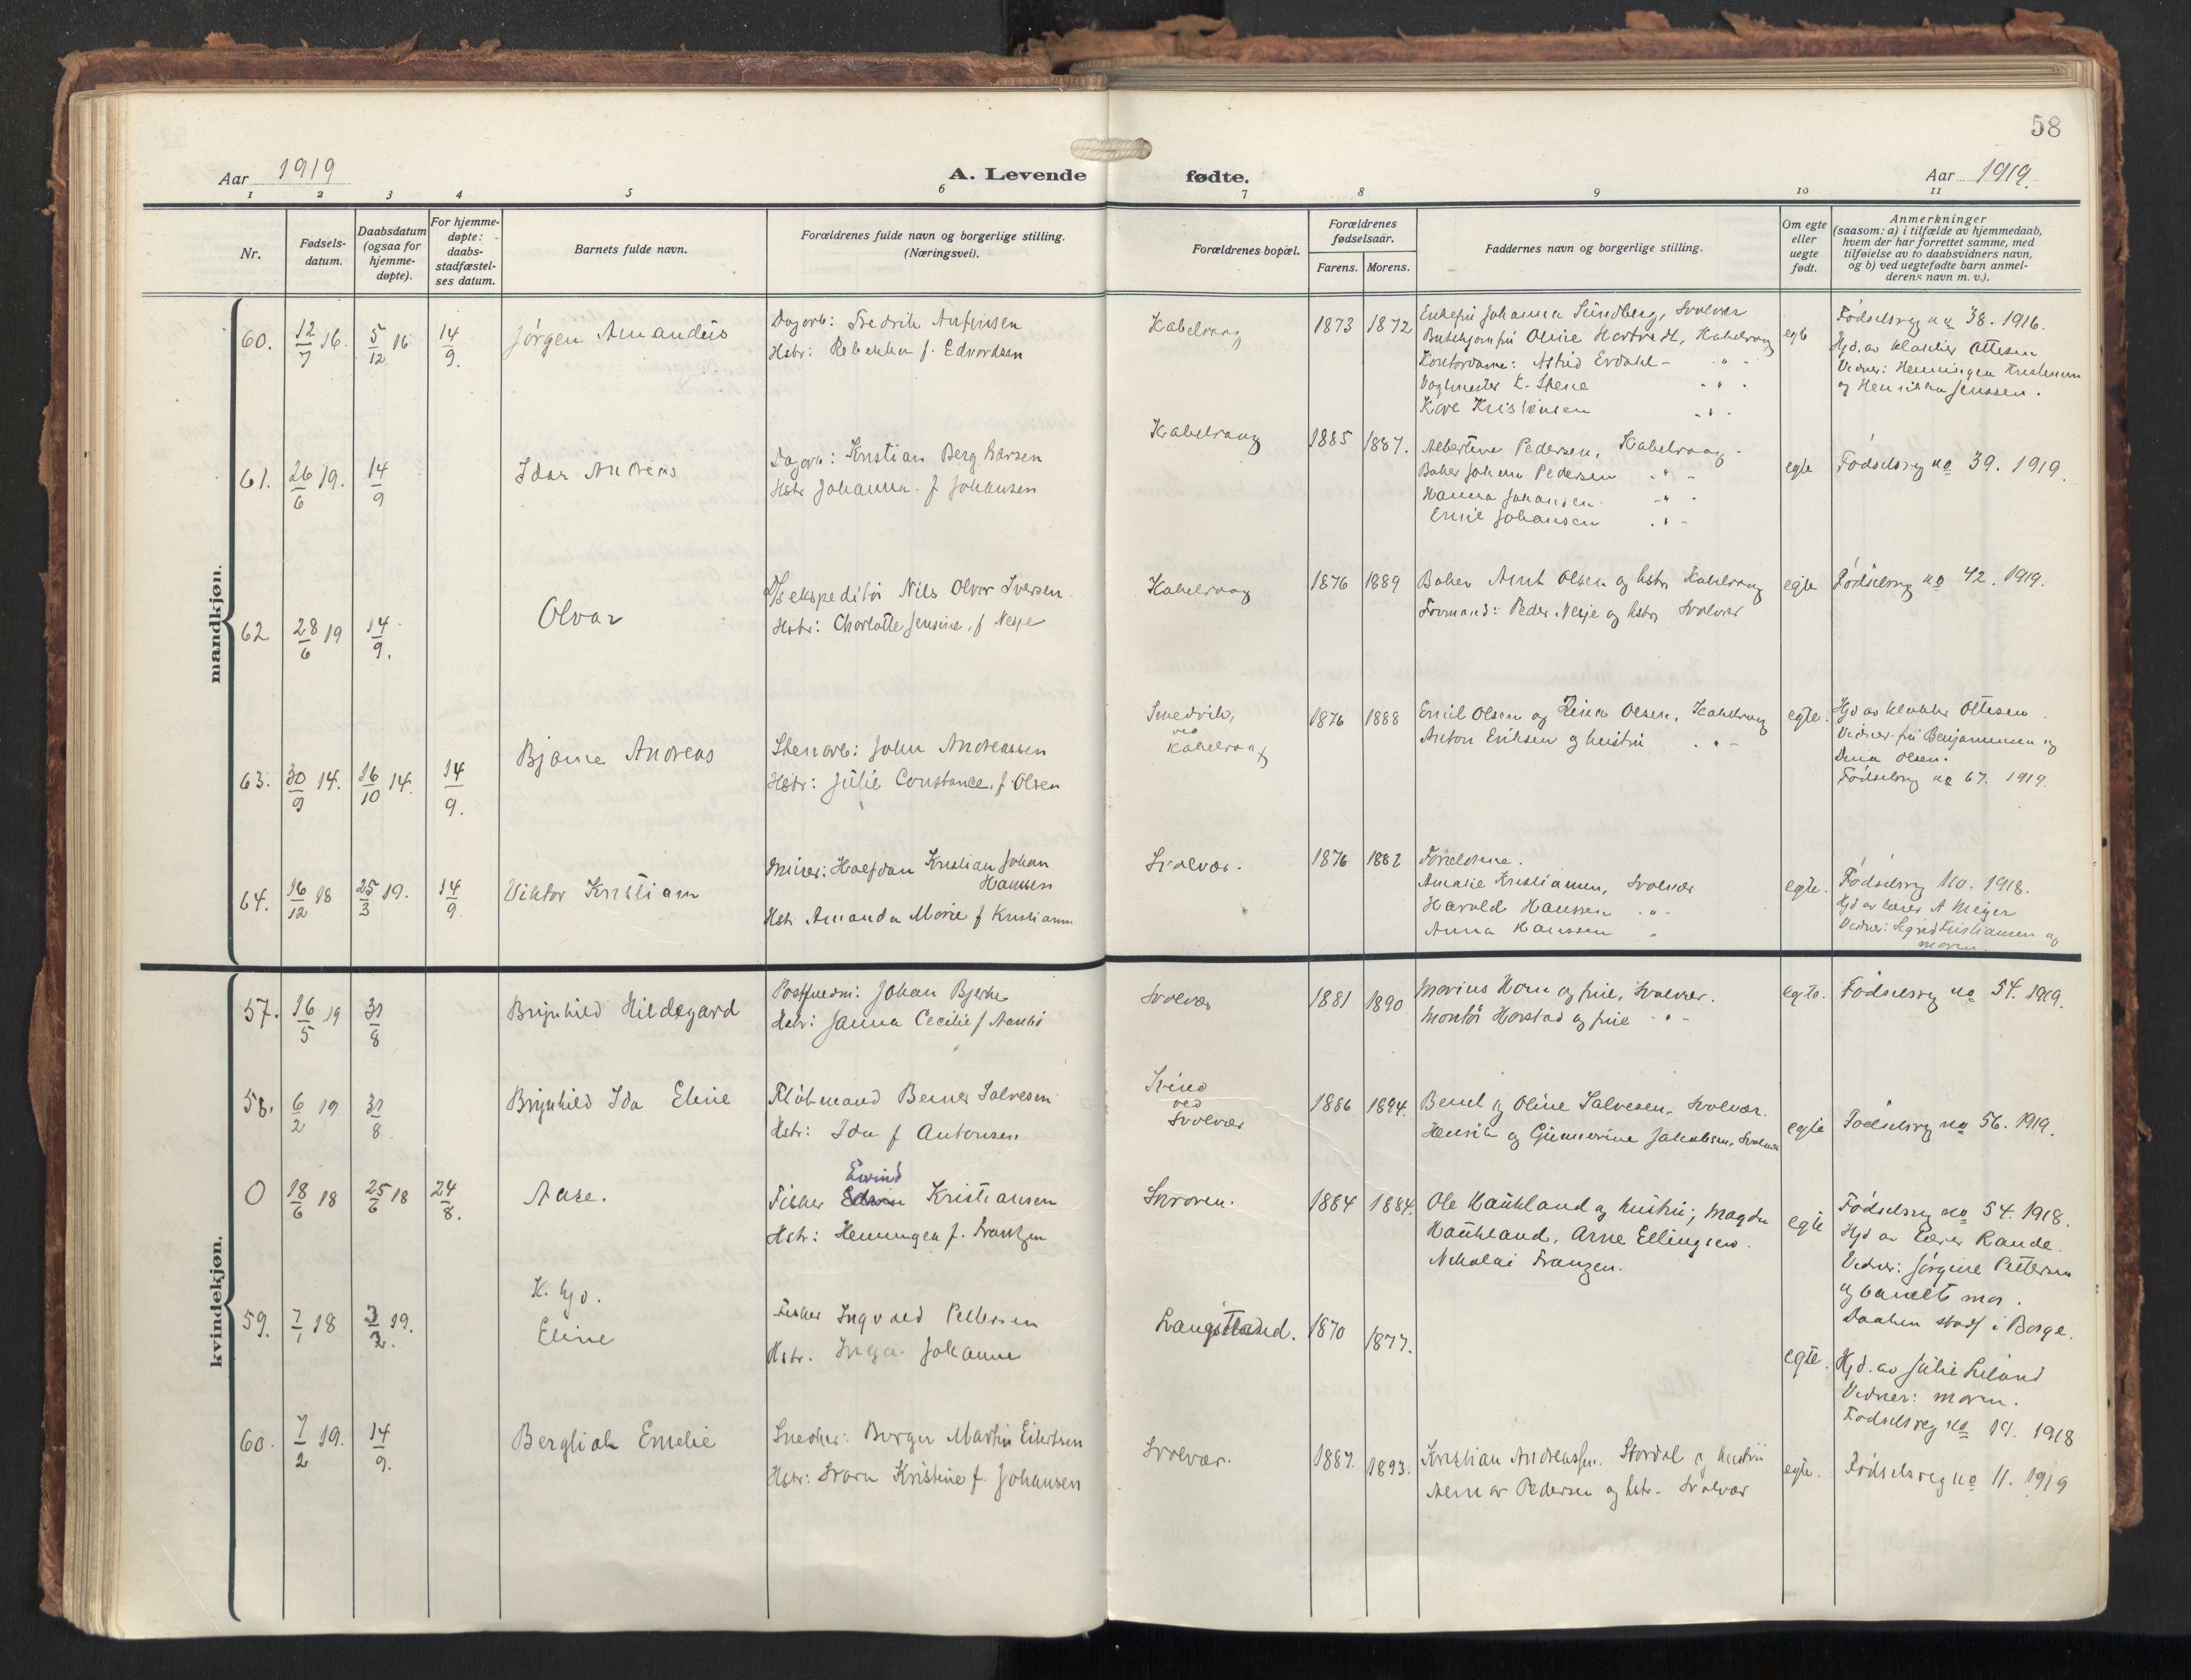 58
Aar 1919
A. Levende fødte.
Aar 1919.
1 2 3 4 5 6 7 8 9 10 11
Nr.
Fødsels-
datum.
Daabsdatum
(ogsaa for
hjemme-
døpte).
For hjemme-
døpte:
daabs-
stadfæstel-
ses datum.
Barnets fulde navn.
Forældrenes fulde navn og borgerlige stilling.
(Næringsvei).
Forældrenes bopæl.
Forældrenes
fødselsaar.
Farens. Morens.
Faddernes navn og borgerlige stilling.
Om egte
eller
uegte
født.
Anmerkninger
(saasom: a) i tilfælde av hjemmedaab,
hvem der har forrettet samme, med
tilføielse av to daabsvidners navn,
og b) ved uegtefødte barn anmel-
derens navn m. v.).
mandkjøn.
60. 12/7 16. 5/12 16 14/9.
Jørgen Amandus
Dagarb: Fredrik
Hstr: Rebekka f. Edvardsen
Kabelvaag
1873 1872
Enkefru Johanna Sundberg, Svolvær
Oline Hartvedt, Kabelvaag
Kontordame: Astrid Evdahl - " -
Vagtmester K. Stene - " -
Kåre Kristensen - " -
egte
Fødselsreg no 38. 1916.
Hjd. av klokker Ottesen
Vidner:
og Henrikka Jenssen.
61. 26/6 19. 14/9
Idar Andreas
Dagarb: Kristian Berg Larsen
Hstr Johanna f Johansen
Kabelvaag
1885 1887.
Albertine Pedersen, Kabelvaag -
Baker Johan Pedersen " -
Hanna Johansen - " -
Emil Johansen - " -
egte
Fødselsreg no 39. 1919.
62 28/6 19 14/9.
Olvar
D/S ekspeditør Nils Olvar Iversen
Hstr: Charlotte Jensine, f Nesje
Kabelvaag
1876 1889
Baker Arnt Olsen og hstr Kabelvaag
Formand: Peder Nesje og hstr Svolvær
egte
Fødselsreg no 42. 1919.
63. 30/9 14. 16/10 14. 14/9.
Bjarne Andreas
Stenarb: John Andreassen
Hstr: Julie Constance, f. Olsen
Smedvik,
ved
Kabelvaag
1876 1888
Emil Olsen og Olsen, Kabelvaag
Anton Eriksen og hustru - " -
egte.
Hjd av klokker Ottesen
Vidner: fru Benjaminsen og
Dina Olsen.
Fødselsreg no 67. 1919.
64. 16/12 18 25/3 19. 14/9.
Viktor Kristian
Murer: Halfdan Kristian Johan
Hanssen
Hstr Amanda Marie f Kristiansen
Svolvær.
1876 1882
Forældrene.
Amalie Kristiansen, Svolvær
Harald Hanssen - " -
Anna Hanssen "
egte.
Fødselsreg 110. 1918.
Hjd av lærer A Meyer
Vidner: Sigrid Kristiansen og
moren.
kvindekjøn.
57. 16/5 19 31/8
Brynhild Hildegard
Postfuldm: Johan Bjerke
Hstr: Janna Cecilie f
Svolvær
1881 1890
Marius Horn og frue, Svolvær.
Montør Harstad og frue - " -
egte.
Fødselsreg no 54. 1919.
58. 6/2 19. 31/8.
Brynhild Ida Eline
Flåtmand Berner Salvesen
Hstr: Ida f Antonsen
Svinø
ved
Svolvær
1886 1894.
Bernt og Oline Salvesen, Svolvær.
Henrik og Gunnerine Jakobsen, Svolvær
egte
Fødselsreg no 56. 1919.
0 18/6 18 25/6 18 24/8.
Aase.
Eivind
Fisker Edvin Kristiansen
Hstr: Henningea f. Frantzen
Skroven.
1884 1884.
Ole Haukland og hustru; Magda
Haukland, Arne Ellingsen.
Nikolai Franzen.
egte
Fødselsreg no 54. 1918.
Hjd av Lærer Rande.
Vidner: Jørgine Pettersen
og barnets mor.
Daaben stadf i Borge.
59. 7/1 18 3/2. 19.
K. hjd.
Eline
Fisker Ingvald Pettersen
Hstr. Inga Johanne
Langstrand.
1870 1877.
egte.
Hjd. av Julie Leland
Vidner: moren.
Fødselsreg no 19. 1918
60. 7/2 19. 14/9.
Bergliot Emelie
Snedker: Borger Martin Eilertsen
Hstr: Svara Kristine f. Johansen
Svolvær.
1887. 1893.
Kristian Andreassen. Stordal og hustru
Almar Pedersen og hstr - Svolvær
egte.
Fødselsreg no 11. 1919